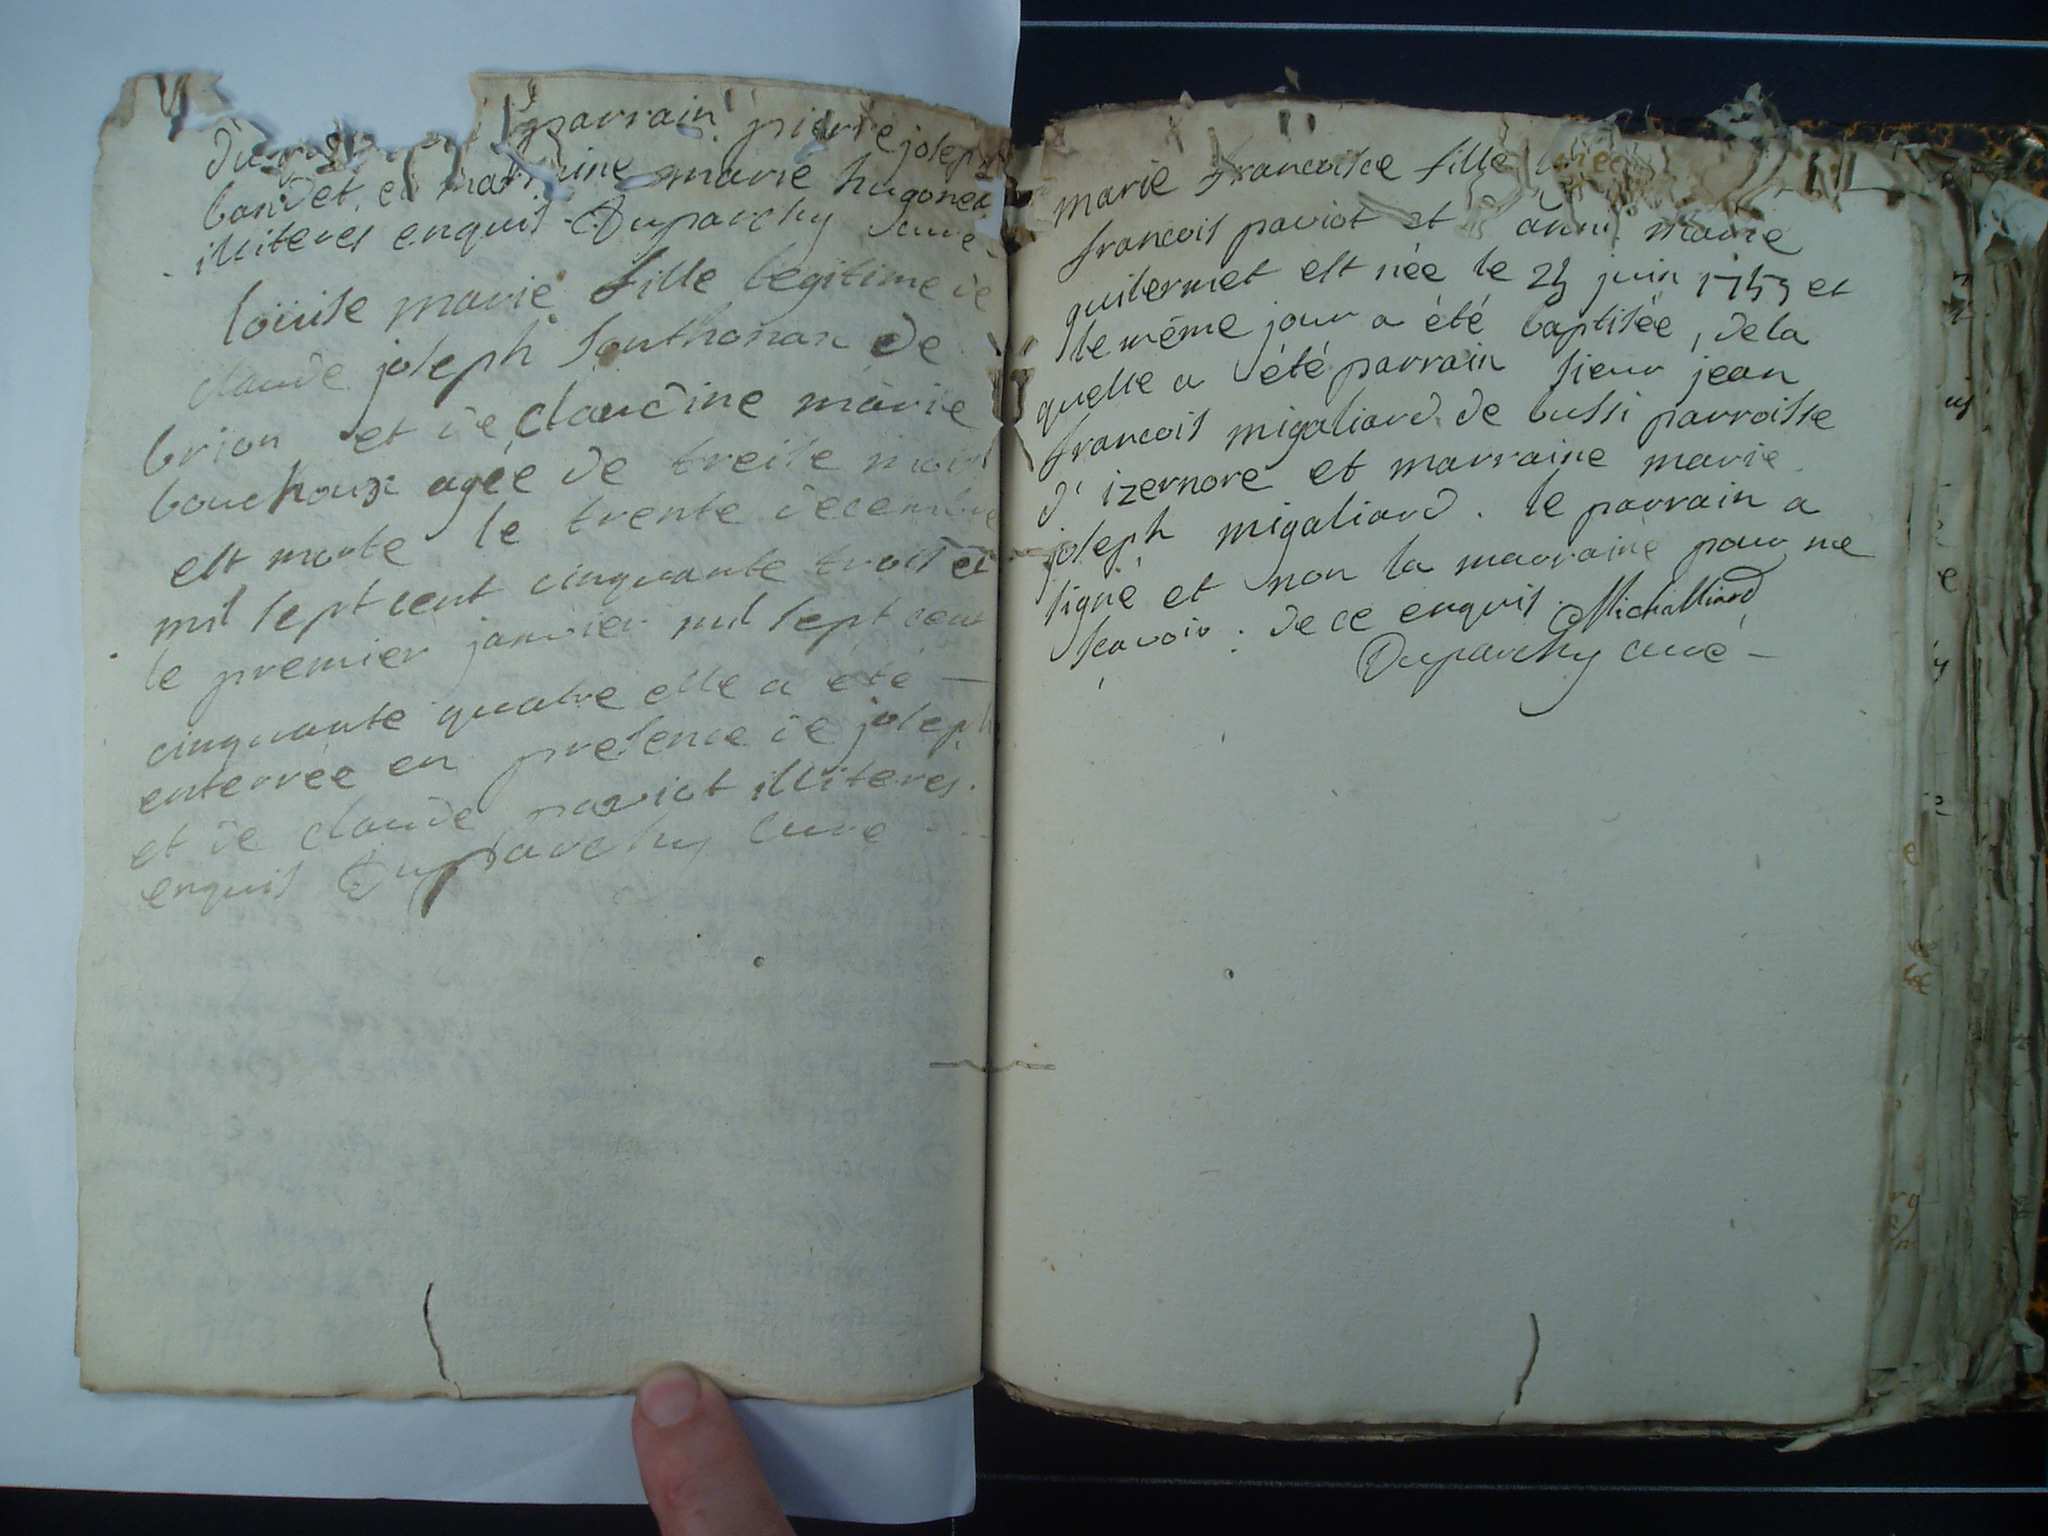 parrain pierre joseph
bandet, et marraine marie hugonet
illiteres enquis Duparchy curé
loüise marie fille legitime de
claude joseph Southonax de
brion et de claudine marie
bouchoux agée de treise mois
est morte le trente decembre
mil sept cent cinquante trois et
le premier janvier mil sept cent
cinquante quatre elle a été
enterrée en presence de joseph
et de claude paviot illiteres.
enquis Duparchy Curé
marie francoise fille
francois paviot et anne marie
guilermet est née le juin 1753 et
le même jour a été baptisée, de la
quelle a été parrain sieur jean
francois migaliard de bussi parroisse
d'izernore et marraine marie
joseph migaliard. le parrain a
signé et non la marraine pour ne
scavoir. de ce enquis. Michalliard
Duparchy curé